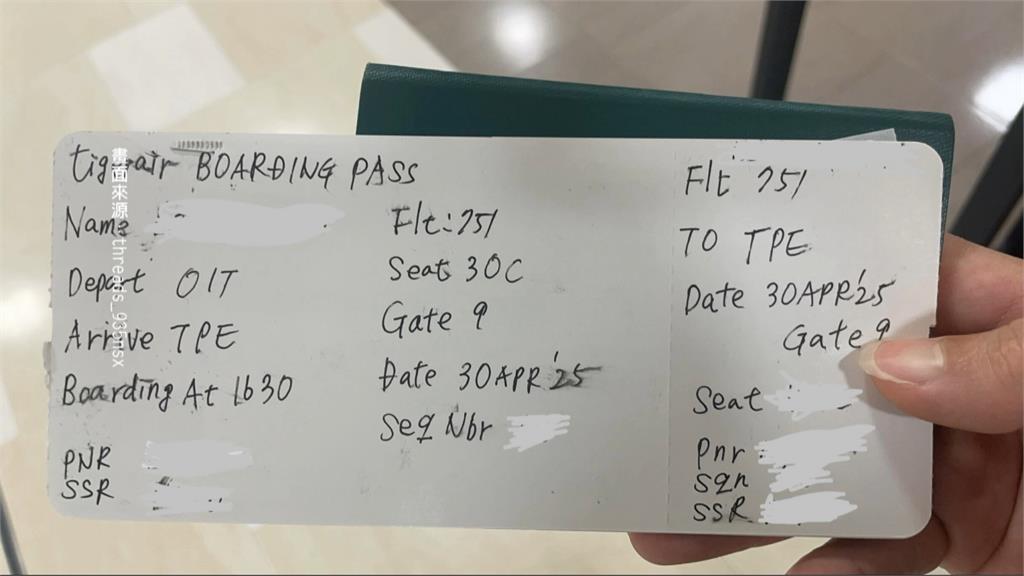 tigerair BOARDING PASS
Name
Depart OIT
Arrive TPE
Boarding At 1630
PNR
SSR
Flt: 751
Seat 30C
Gate 9
Date 30APR'25
Seq Nbr
Flt 751
TO TPE
Date 30APR'25
Gate 9
Seat
Pnr
Sqn
SSR
畫面來源